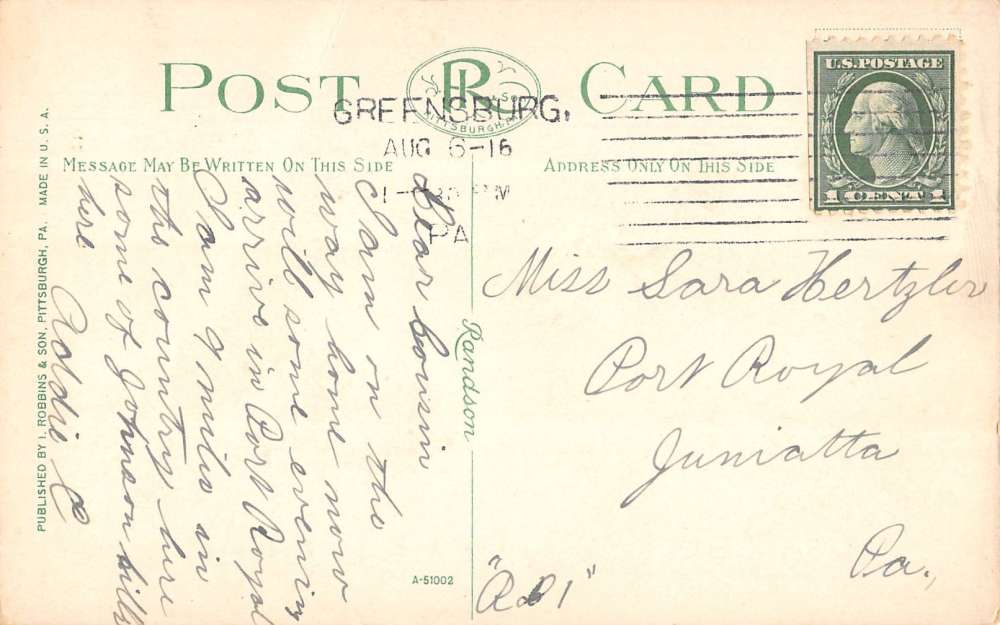 POST CARD
R
PITTSBURGH, PA.
GREENSBURG,
AUG 6-16
PM
PA
U.S. POSTAGE
1 CENT 1
MESSAGE MAY BE WRITTEN ON THIS SIDE
ADDRESS ONLY ON THIS SIDE
Dear Cousin
I am on the
way home now
will some evening
arrive in Port Royal
I am 9 miles in
the country here
some of Johnson hills
here
Miss Sara Hertzler
Port Royal
Juniatta
Pa.
Randson
A-51002
PUBLISHED BY I. ROBBINS & SON, PITTSBURGH, PA. MADE IN U. S. A.